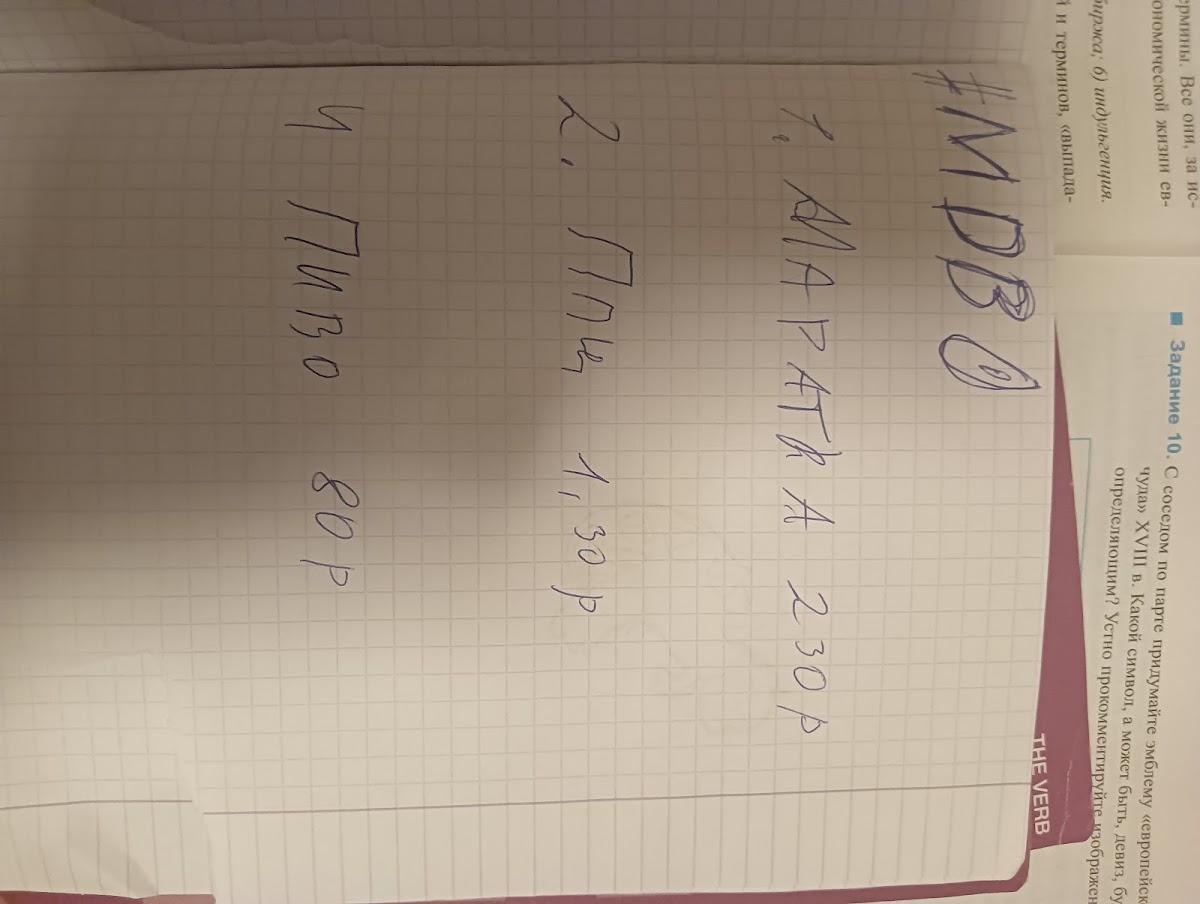 #MDBO
1. МАРАТКА 230 р
2. ППЦ 1,30 р
4 ПИВО 80 р
THE VERB
ермины. Все они, за ис-
ономической жизни ев-
биржа; б) индульгенция.
й и терминов, «выпада-
■ Задание 10. С соседом по парте придумайте эмблему «европейск
чуда» XVIII в. Какой символ, а может быть, девиз, бу
определяющим? Устно прокомментируйте изображен